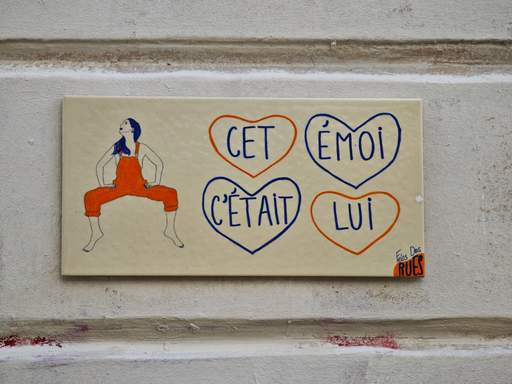 CET ÉMOI
C'ÉTAIT LUI
Folies Des
RUES